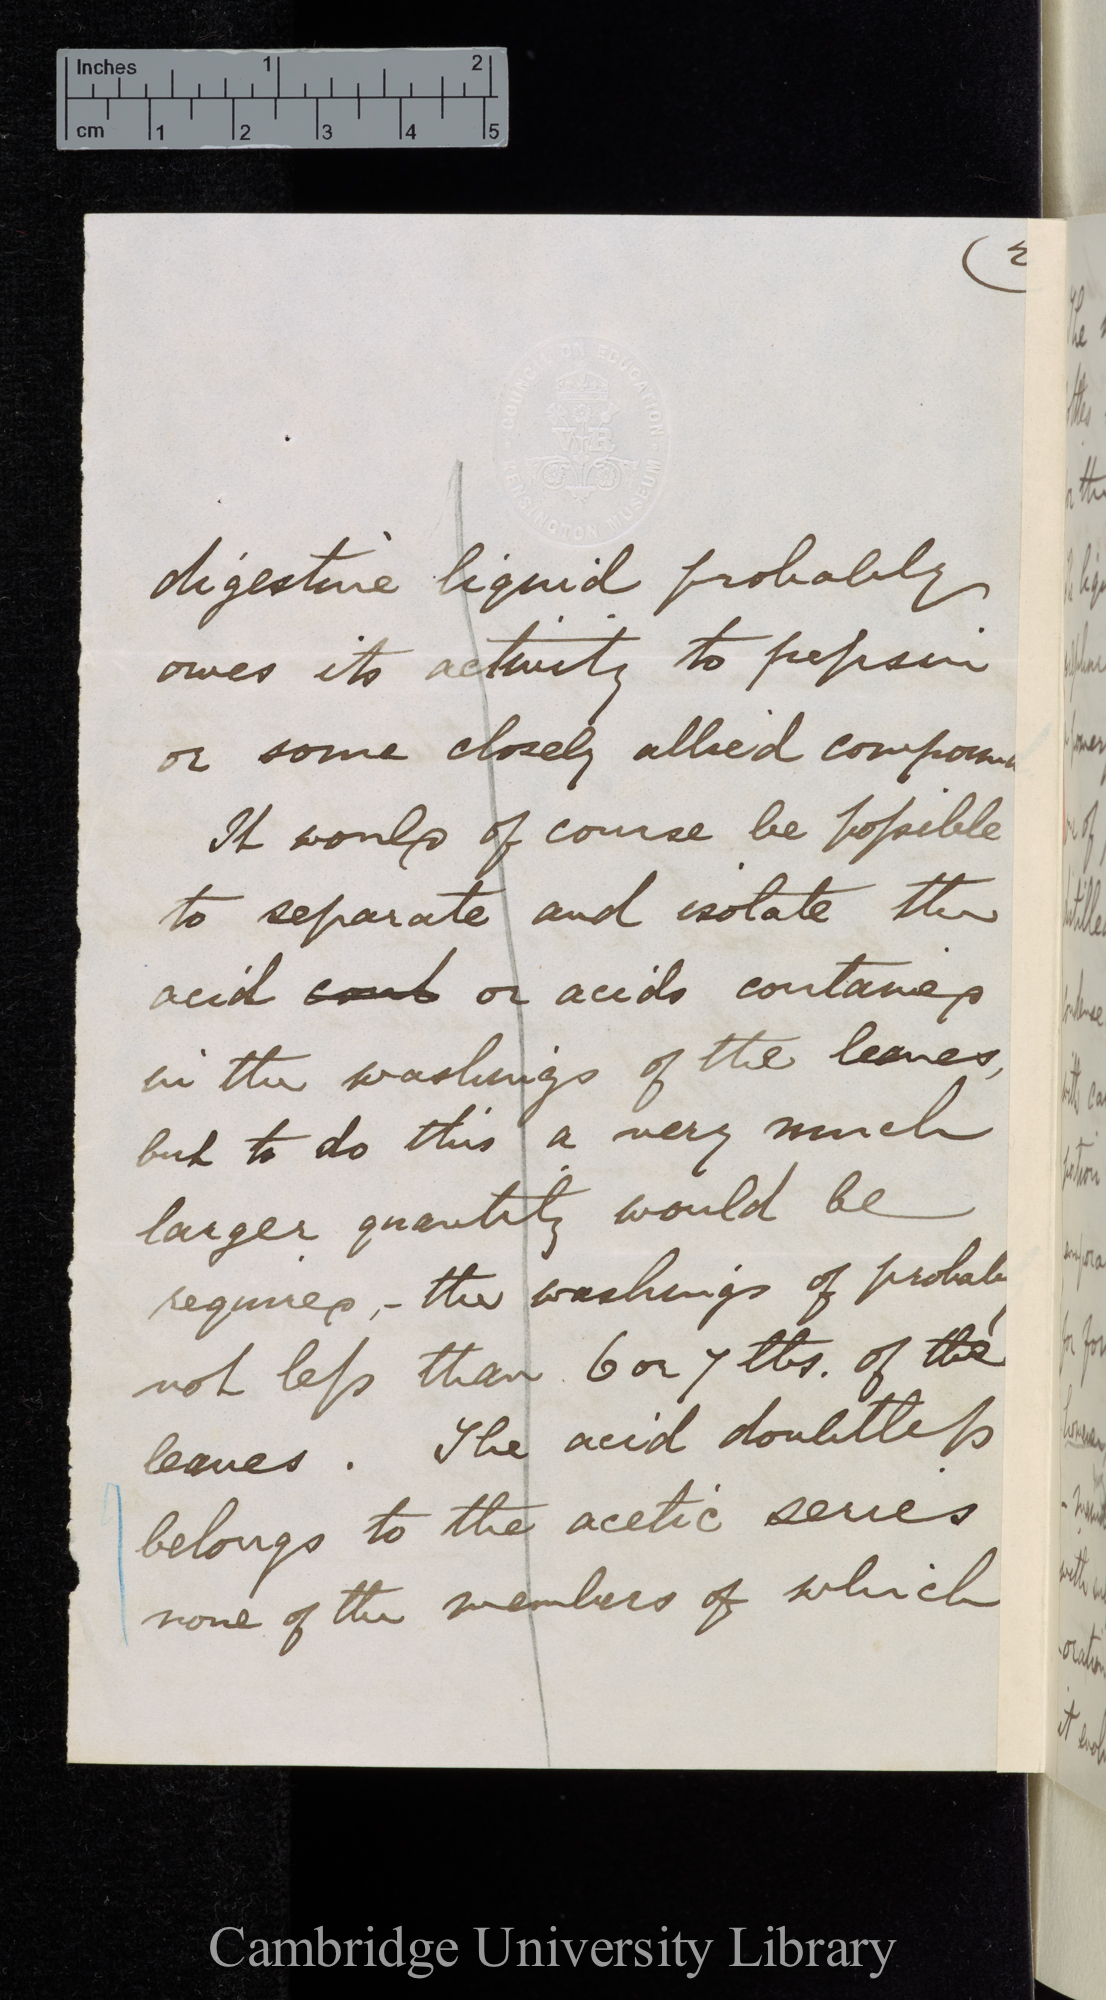 Inches 1 2
cm 1 2 3 4 5
(2
COUNCIL ON EDUCATION
V R
KENSINGTON MUSEUM
digestive liquid probably
owes its activity to pepsin
or some closely allied compoun
It would of course be possible
to separate and isolate the
acid or acids contained
in the washings of the leaves,
but to do this a very much
larger quantity would be
required, - the washings of probably
not less than 6 or 7 lbs. of the
leaves. The acid doubtless
belongs to the acetic series
none of the members of which
Cambridge University Library